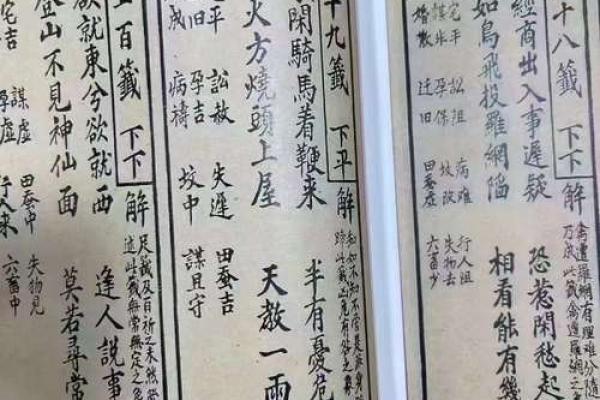 十八籤 下下 解 禽遭羅網有罹难分隨
万成此籤禽遭羅網之
經商出入事遲疑 恐惹閑愁起
如鳥飛投羅網陷 相看能有幾
宅平 訟阻 病难 行人阻
孕保 坟改 失物去
婚散 迁旧 田蚕虛 六畜少
十九籤 下平 解
閑騎馬着鞭来 半有憂危
火方燒頭上屋 天教一雨
平 訟赦 失遲 田蚕吉
旧 孕吉 坟中 謀且守
成 病禱
百籤 下下 解 足籤及百祈之未然
述此籤無常無定之
欲就東兮欲就西 逢人說事
登山不見神仙面 莫若尋常
宅吉 謀虛 田蚕中 失物見
孕虛 行人来 六畜中